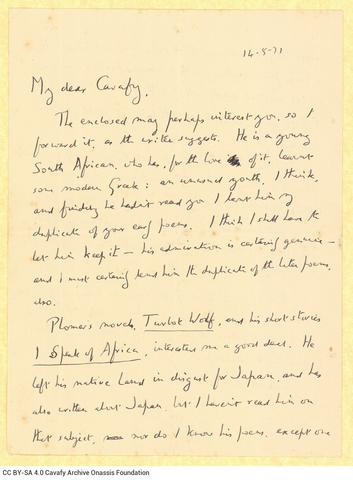 14-5-71
My dear Cavafy,
The enclosed may perhaps interest you, so I
forward it, as the writer suggests. He is a young
South African, who has, for the love of it, learnt
some modern Greek: an unusual youth, I think,
and finding he hadn't read you I lent him my
duplicate of your early poems. I think I shall have to
let him keep it — his admiration is certainly genuine —
and I must certainly lend him the duplicate of the later poems,
also.
Plomer's novel, Turbot Wolf, and his short stories
I Speak of Africa, interested me a good deal. He
left his native land in disgust for Japan, and has
also written about Japan, but I haven't read him on
that subject, nor do I know his poems, except one
CC BY-SA 4.0 Cavafy Archive Onassis Foundation